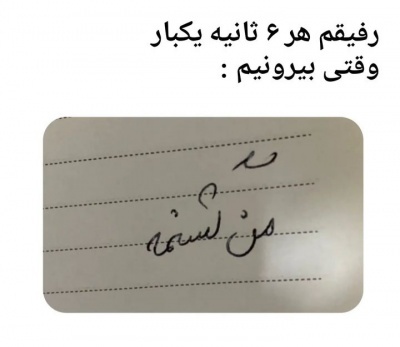 رفیقم هر ۶ ثانیه یکبار
وقتی بیرونیم :
من گشنمه